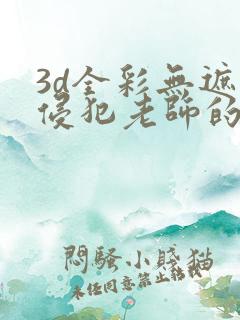 3d全彩無遮
侵犯老師的
悶騷小賤貓
未任同意禁止轉載